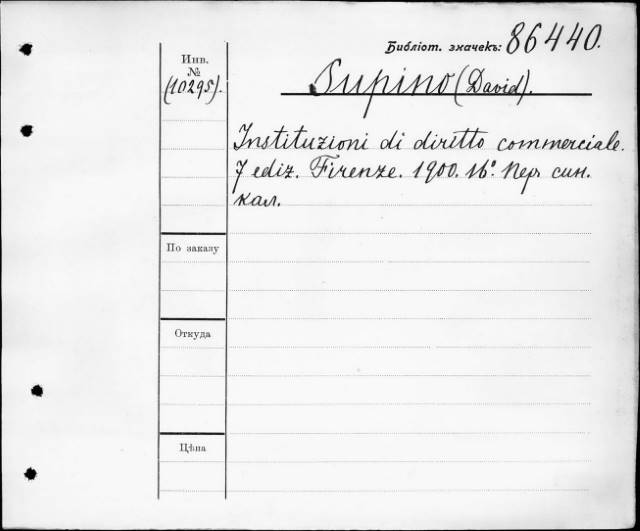 Библіот. значекъ: 86440.
Инв.
№
(10295).
Supino (David).
Instituzioni di diritto commerciale.
7 ediz. Firenze. 1900. 16º. Пер. син.
кал.
По заказу
Откуда
Цѣна